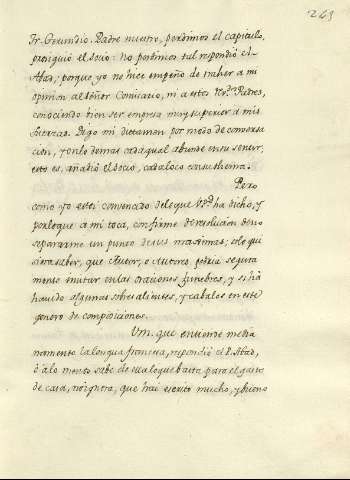 249
Fr. Gerundio. Padre nuestro, perdimos el capitulo,
prosiguió el socio: no perdimos tal respondió el
Abad; porque yo no hice empeño de traher a mi
opinion al Señor Comisario, ni a estos Rv.dos Padres,
conociendo bien ser empresa muy superior a mis
fuerzas. Digo mi dictamen por modo de conversa
cion, y en lo demas cada qual abunde en su sentir,
esto es, añadió el socio, cada loco con su thema.
Pero
como yo estoi convencido de lo que V.P.d ha dicho, y
por lo que a mi toca, con firme resolucion de no
separarme un punto de sus maximas; solo qui
siera saber, que Autor, o Autores podria segura
mente imitar en las oraciones funebres, y si ha
havido algunos sobresalientes, y cabales en este
genero de composiciones.
Vm. que entiende media
namente la lengua francesa, respondió el P. Abad,
o a lo menos sabe de ella lo que basta para el gasto
de casa, no ignora, que hai escrito mucho, y bueno